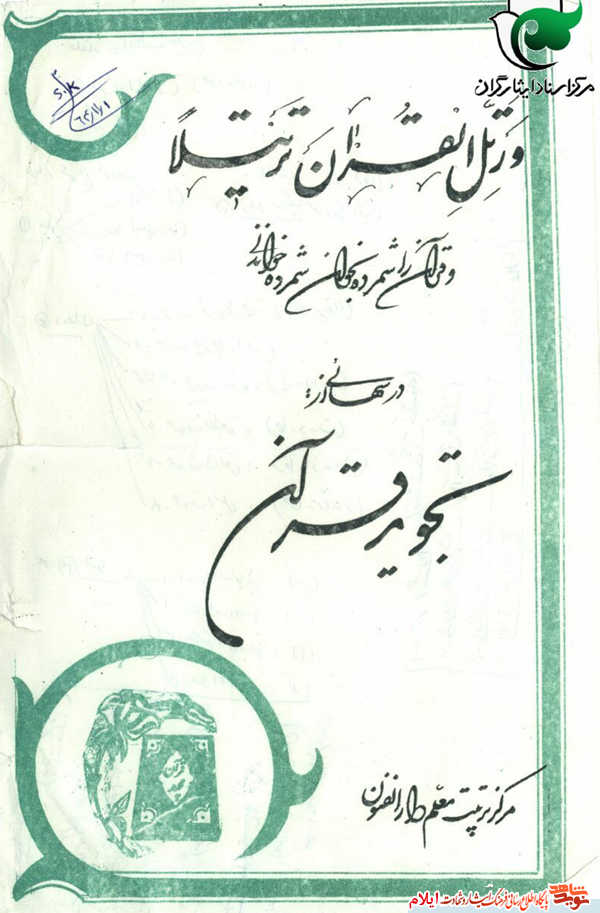 مرکز اسناد ایثارگران
۶۴/۱/۱
وَرَتِّلِ الْقُرْآنَ تَرْتیلاً
و قرآن را شمرده بخوان شمرده خواندنی
درسهائی از:
تجوید قرآن
مرکز تربیت معلم دارالفنون
نوید شاهد
پایگاه اطلاع رسانی فرهنگ ایثار و شهادت ایلام